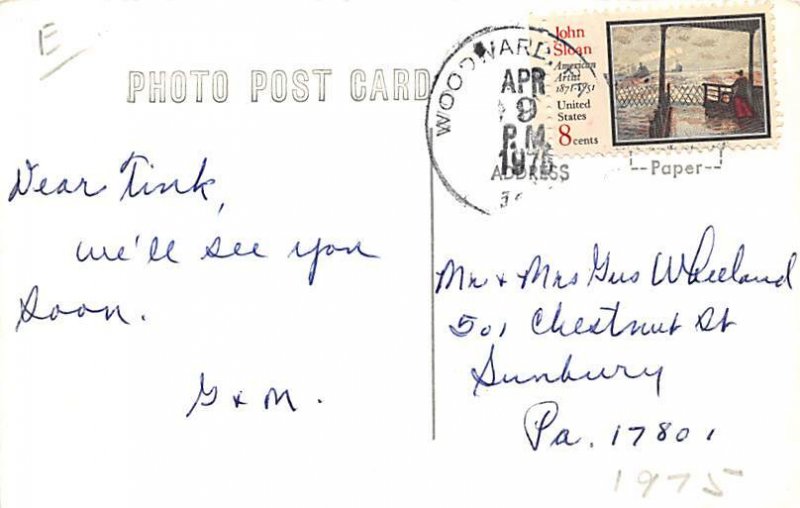 E
PHOTO POST CARD
WOODWARD,
APR
9
P.M.
1975
John
Sloan
American
Artist
1871-1951
United
States
8 cents
ADDRESS
Paper
Dear Tink,
we'll see you
soon.
G & M.
Mr & Mrs Gus Wheeland
501 Chestnut St
Sunbury
Pa. 17801
1975